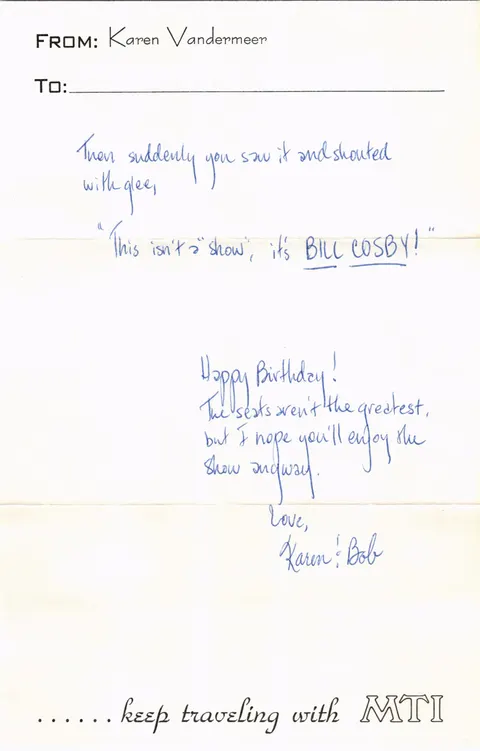 FROM: Karen Vandermeer
TO:
Then suddenly you saw it and shouted
with glee,
"This isn't a "show", it's BILL COSBY!"
Happy Birthday!
The seats aren't the greatest,
but I hope you'll enjoy the
show anyway.
Love,
Karen & Bob
......keep traveling with MTI